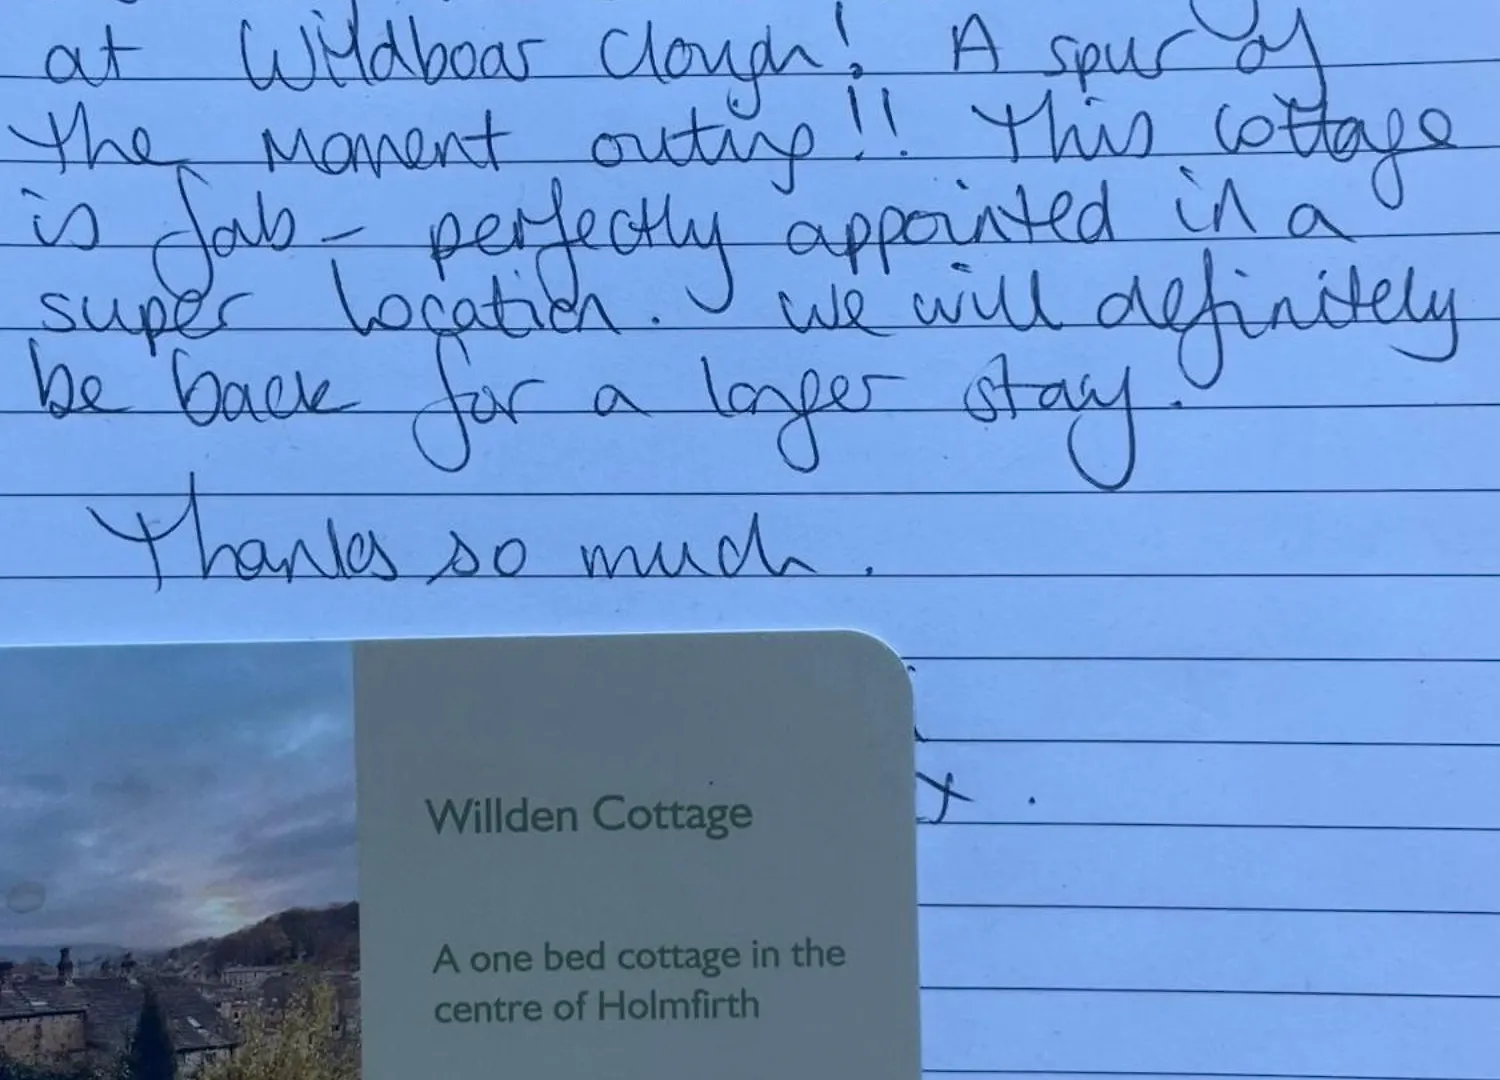 at Wildboar Clough! A spur of
the moment outing!! This cottage
is fab - perfectly appointed in a
super location. We will definitely
be back for a longer stay.
Thanks so much.
x.
Willden Cottage
A one bed cottage in the
centre of Holmfirth